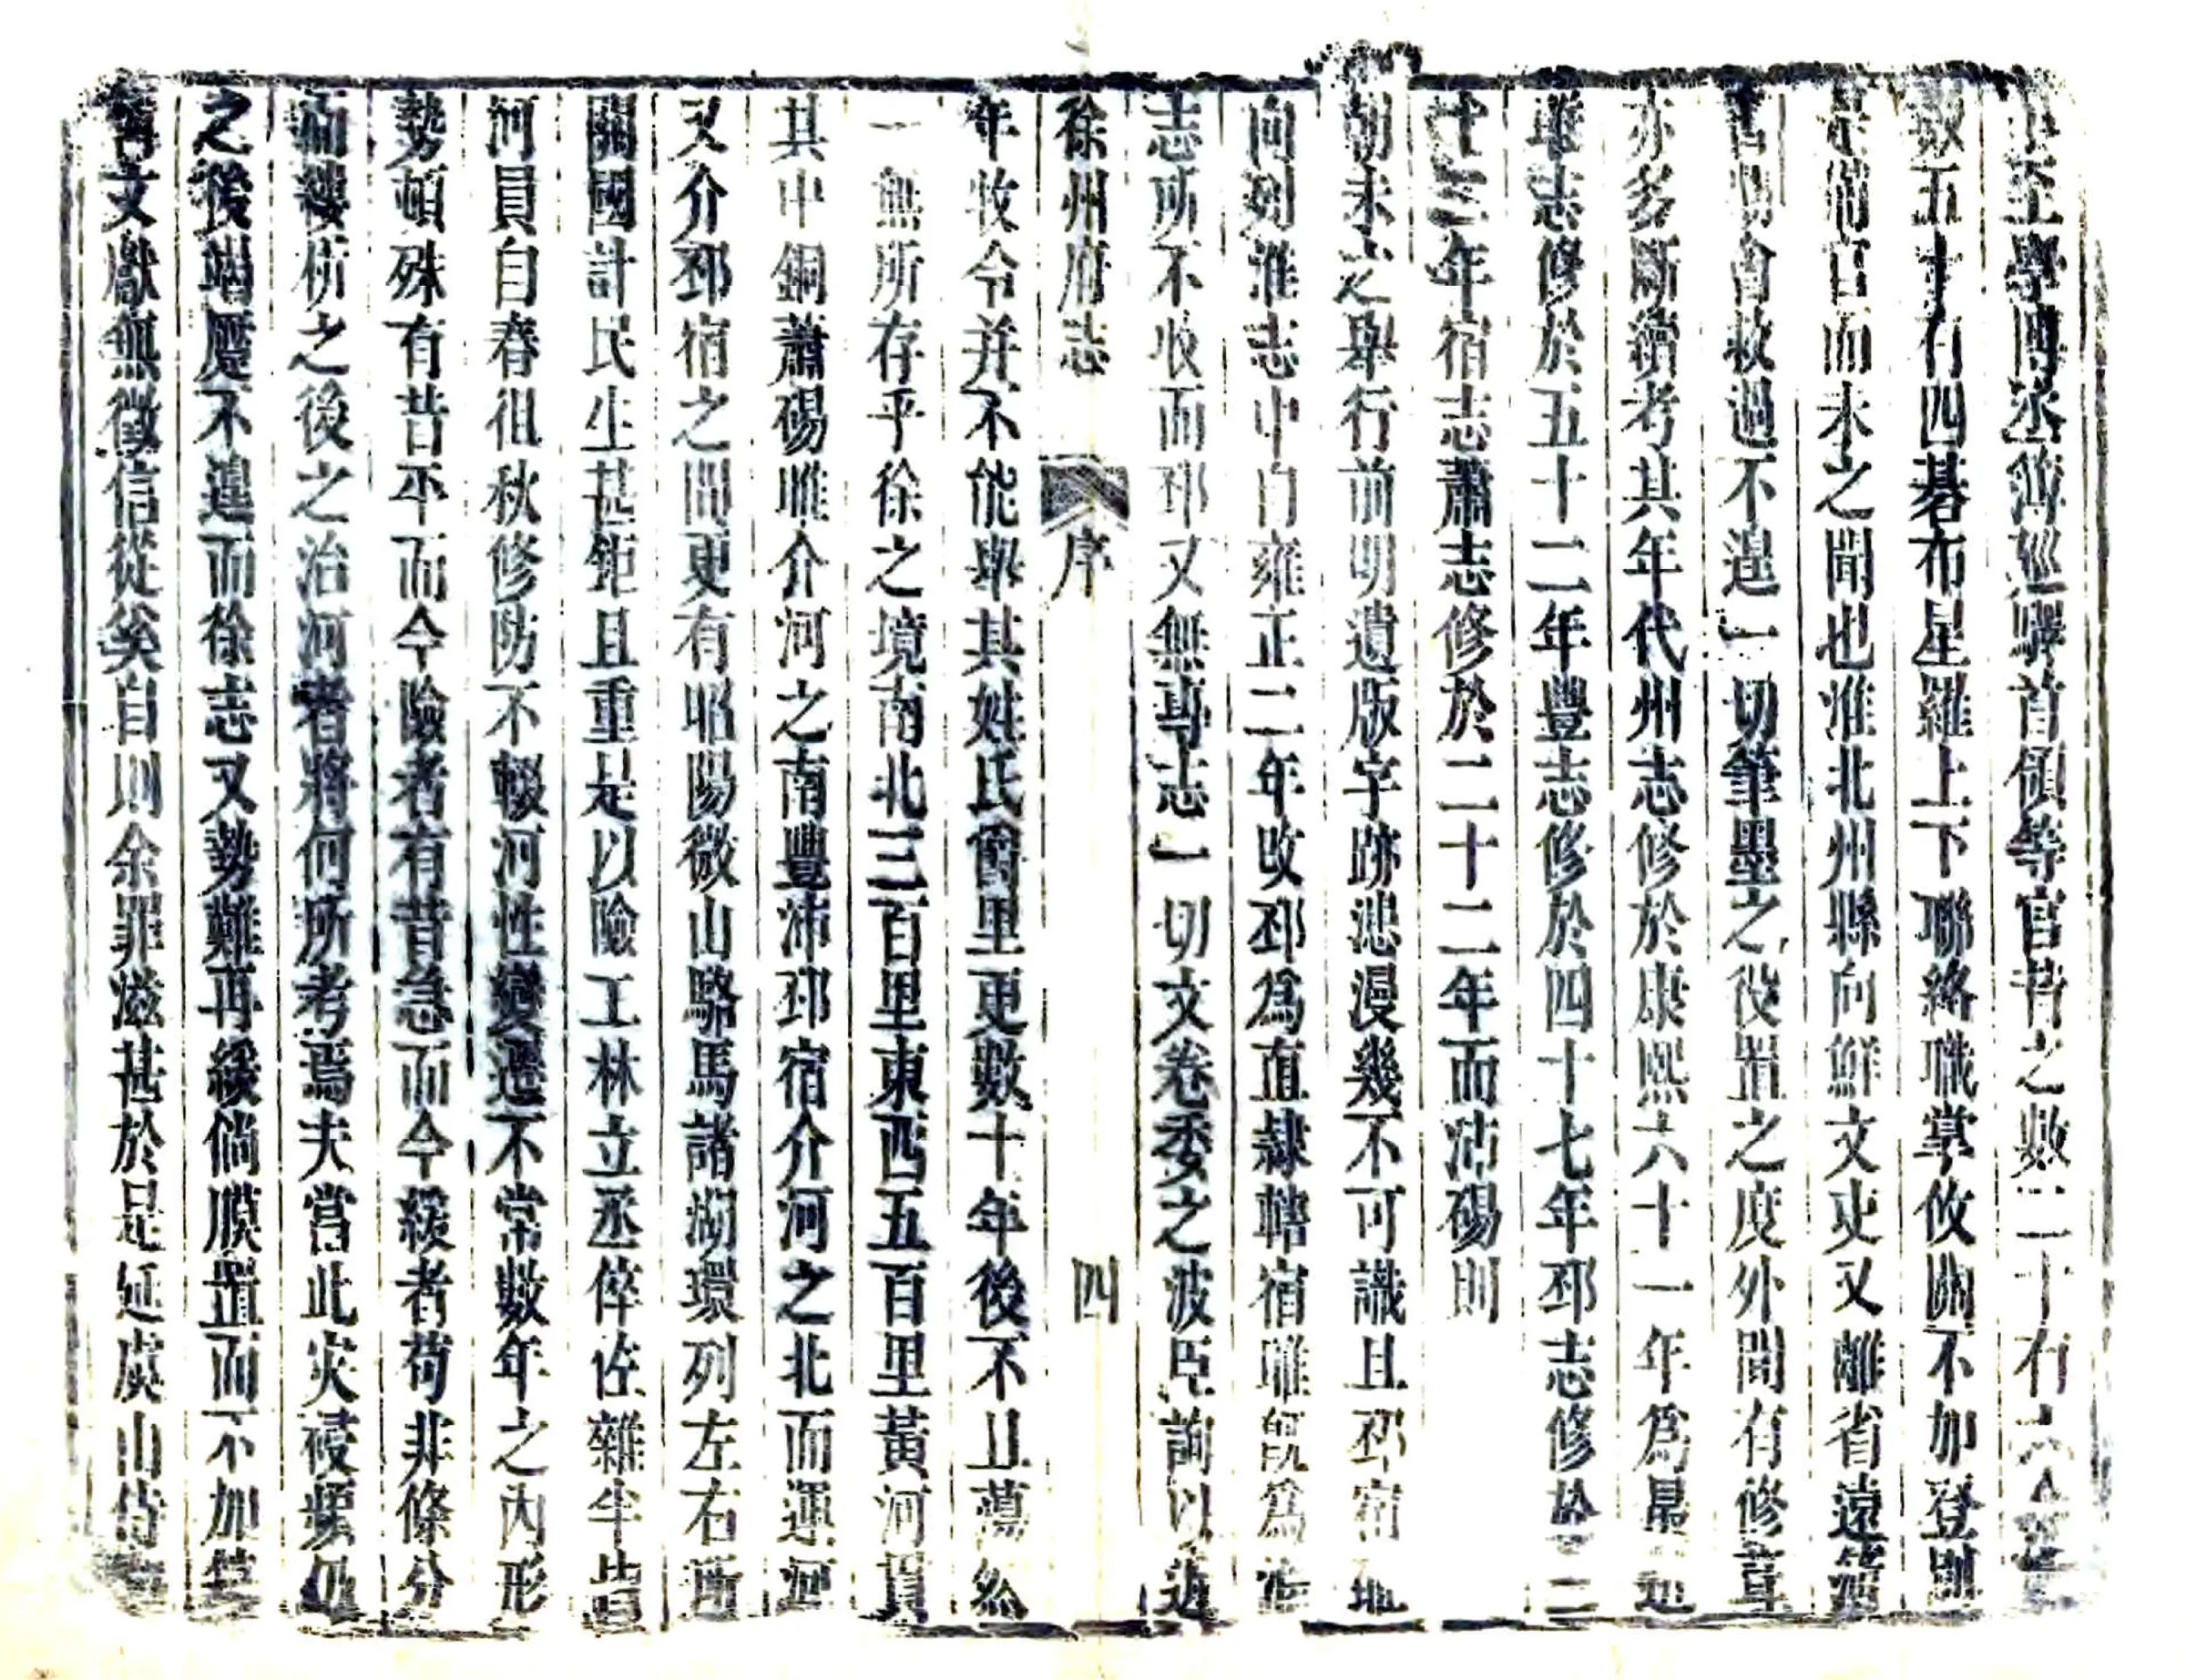 至學博丞簿巡驛首領等官昔之數二十有六今
數五十有四碁布星羅上下聯絡職掌攸關不加登則
是備官而未之聞也淮北州縣向鮮文史又離省遠簿
書期會救過不遑一切筆墨之役置之度外間有修葺
亦多斷續考其年代州志修於康熙六十一年爲最近
睢志修於五十二年豐志修於四十七年邳志修於三
十三年宿志蕭志修於二十二年而沽碭則
朝未之舉行前明遺版字跡漶漫幾不可識且邳宿地
向列淮志中自雍正二年改邳爲直隸轄宿睢既爲淮
志所不收而邳又無專志一切文卷委之波臣詢以邇
徐州府志 序 四
年牧令并不能舉其姓氏爵里更數十年後不且蕩然
一無所存乎徐之境南北三百里東西五百里黃河貫
其中銅蕭碭睢介河之南豐沛邳宿介河之北而運河
又介邳宿之間更有昭陽微山駱馬諸湖環列左右所
關國計民生甚鉅且重是以險工林立丞倅佐雜半皆
河員自春徂秋修防不輟河性變遷不常數年之內形
勢頓殊有昔平而今險者有昔急而今緩者苟非條分
而縷析之後之治河者將何所考焉夫當此災祲瘵仍
之後端屢不遑而徐志又勢難再緩倘膜置而不加纂
輯文獻無徵信從奚自則余罪滋甚於是延虞山侍